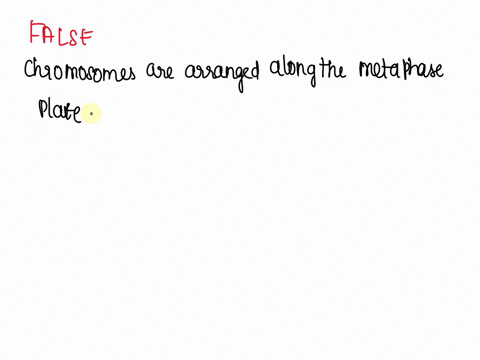 FALSE
Chromosomes are arranged along the metaphase
Plate.